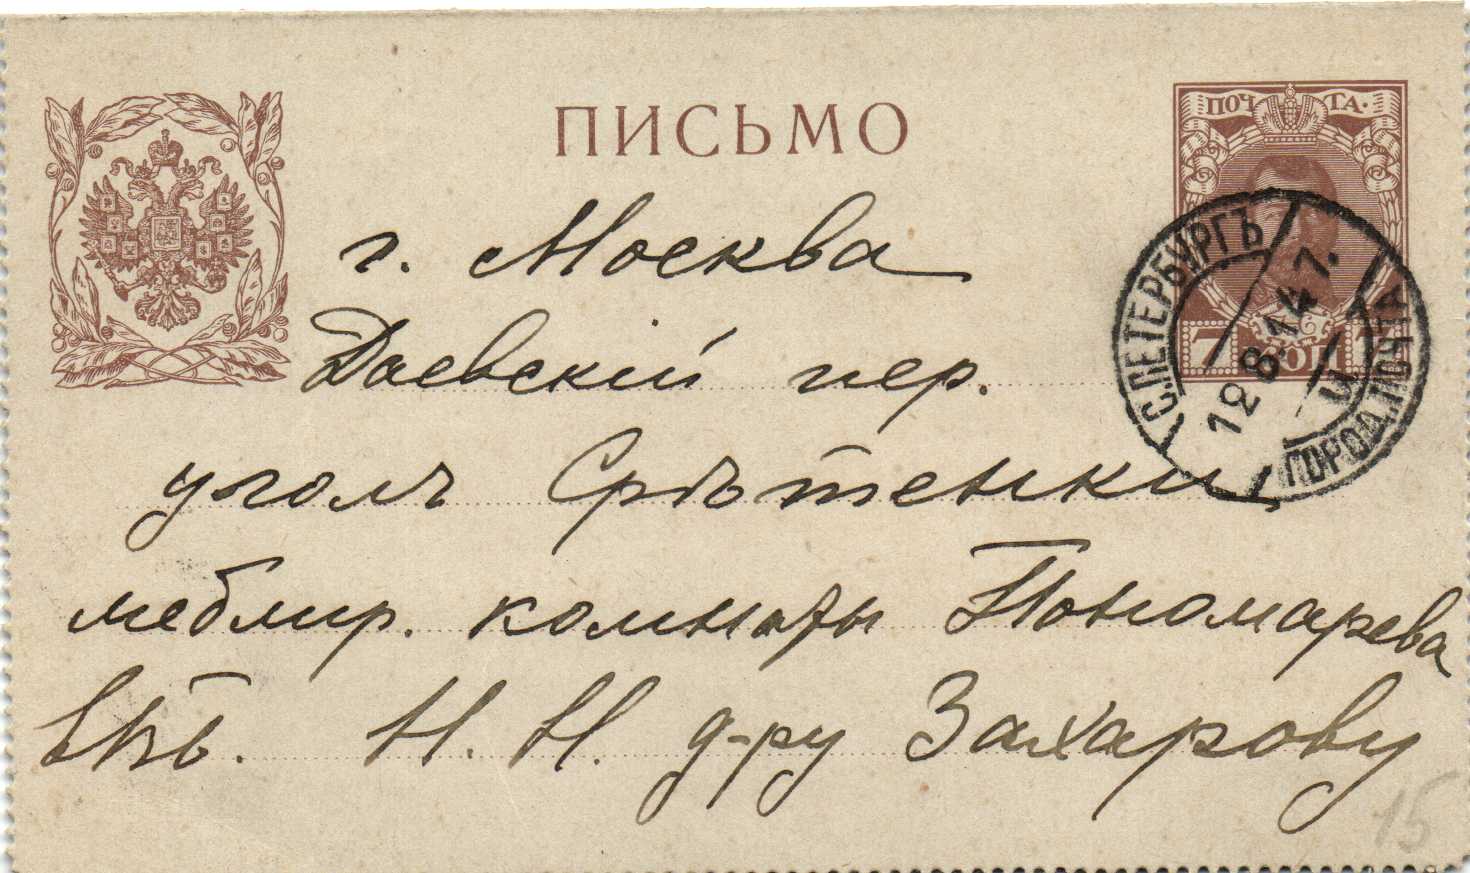 ПИСЬМО
ПОЧТА.
7 КОП 7
С.ПЕТЕРБУРГЪ
12 8.14 7.
ГОРОД.ПОЧТА
г. Москва
Даевскій пер.
уголъ Срѣтенки
меблир. комнаты Пономарева
Евб. Н. Н. д-ру Захарову
15